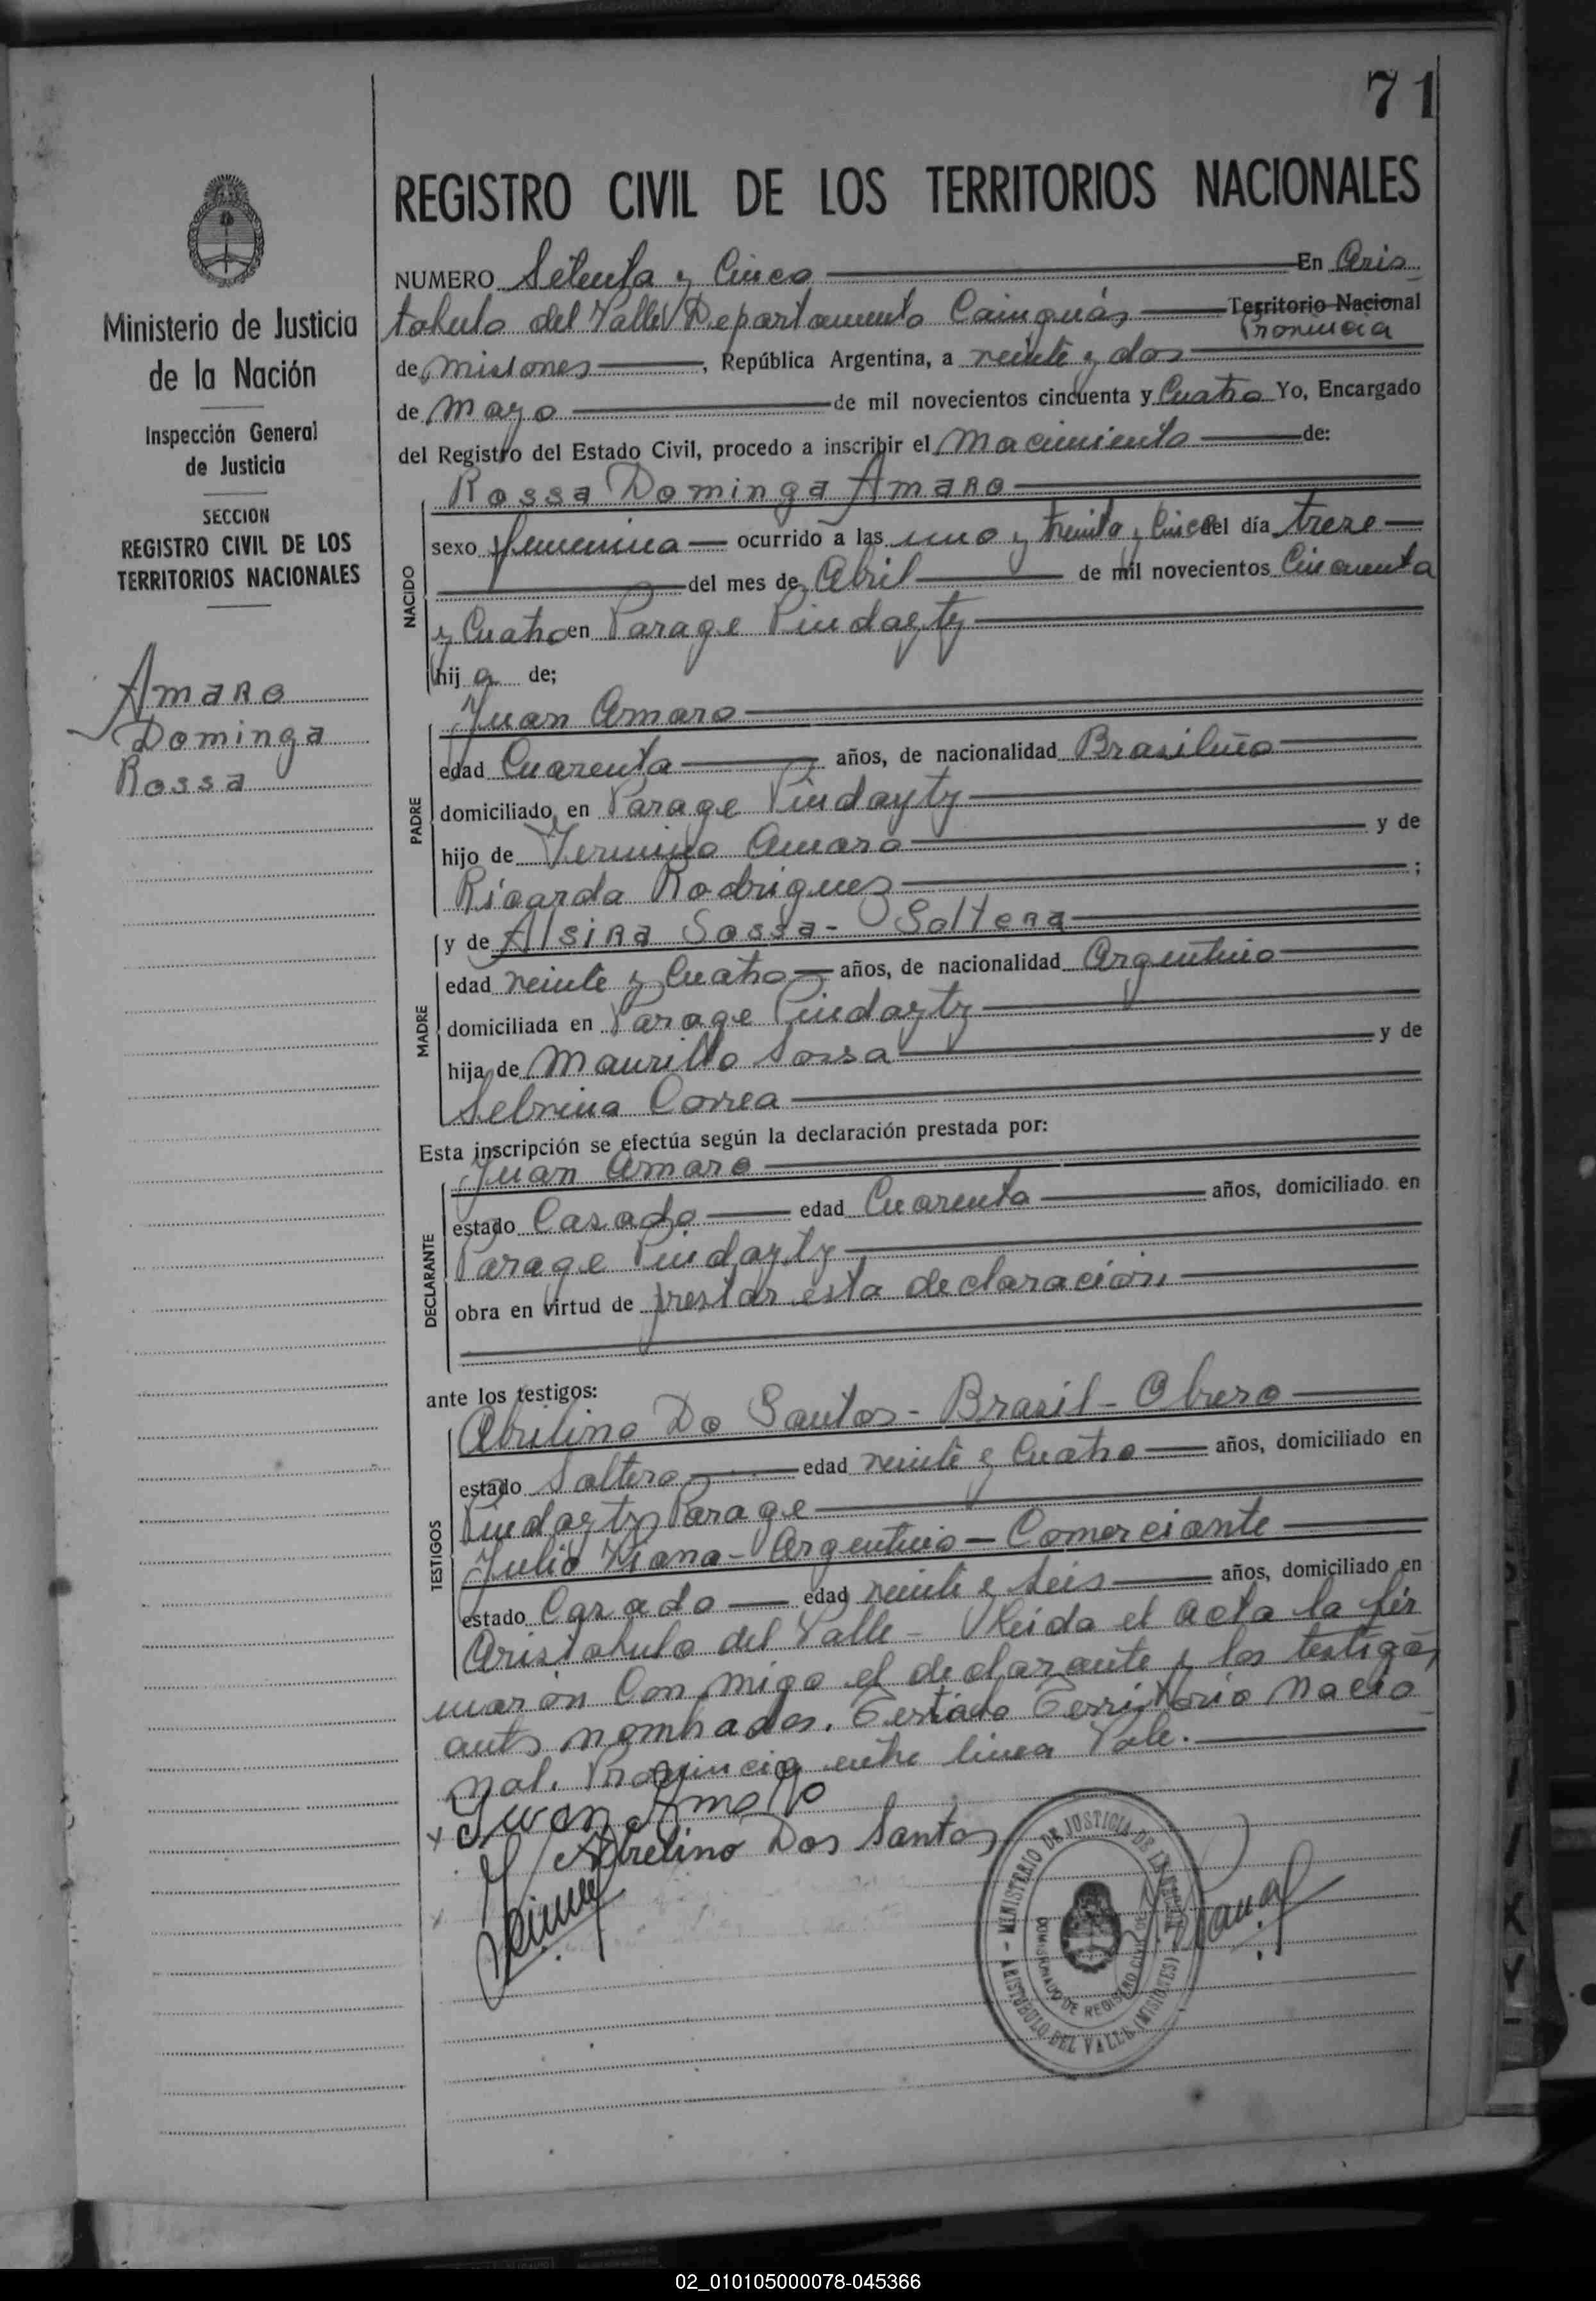 71
REGISTRO CIVIL DE LOS TERRITORIOS NACIONALES
Ministerio de Justicia
de la Nación
Inspección General
de Justicia
SECCION
REGISTRO CIVIL DE LOS
TERRITORIOS NACIONALES
Amaro
Dominga
Rossa
NUMERO Setenta y Cinco En Aris
tobulo del Valle Departamento Cainguás Territorio Nacional
Provincia
de Misiones, República Argentina, a veinte y dos
de Mayo de mil novecientos cincuenta y Cuatro Yo, Encargado
del Registro del Estado Civil, procedo a inscribir el Nacimiento de:
NACIDO
Rossa Dominga Amaro
sexo femenina ocurrido a las uno y treinta y Cinco del día treze
del mes de Abril de mil novecientos Cincuenta
y Cuatro en Parage Pindayty
hij a de;
PADRE
Juan Amaro
edad Cuarenta años, de nacionalidad Brasileño
domiciliado en Parage Pindayty
hijo de Amaro y de
Ricarda Rodriguez ;
MADRE
y de Alsira Sossa - Soltera
edad veinte y Cuatro años, de nacionalidad Argentino
domiciliada en Parage Pindayty
hija de Maurillo Sossa y de
Correa
Esta inscripción se efectúa según la declaración prestada por:
DECLARANTE
Juan Amaro
estado Casado edad Cuarenta años, domiciliado en
Parage Pindayty
obra en virtud de prestar esta declaracion
ante los testigos:
TESTIGOS
Abelino Do Santos - Brasil - Obrero
estado Soltero edad veinte y Cuatro años, domiciliado en
Pindayty Parage
Julio Viana - Argentino - Comerciante
estado Casado edad veinte y Seis años, domiciliado en
Aristobulo del Valle - Leida el Acta la fir
maron Con migo el declarante y los testigos
ants nombrados. Testado Territorio Nacio
nal. Provincia entre linea Vale.
x Juan Amaro
Abelino Dos Santos
MINISTERIO DE JUSTICIA DE LA NACION
ARISTOBULO DEL VALLE (MISIONES)
02_010105000078-045366